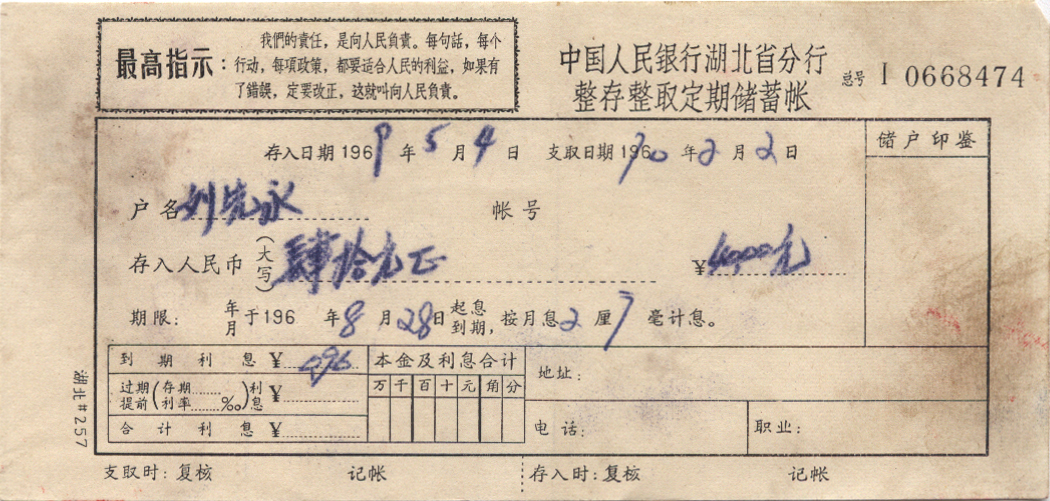 最高指示：
我們的責任，是向人民負責。每句話，每个
行动，每項政策，都要适合人民的利益，如果有
了錯誤，定要改正，这就叫向人民負責。
中国人民银行湖北省分行
整存整取定期储蓄帐
总号 I 0668474
存入日期1969年5月4日 支取日期19670年2月2日
储户印鉴
户名 刘先永 帐号
存入人民币（大写）肆拾元正 ¥4000元
期限：年月于196 年8月28日起息到期，按月息2厘7毫计息。
到期利息¥ 496
本金及利息合计
地址：
过期提前（存期……利率……‰）利息¥
万千百十元角分
合计利息¥
电话：
职业：
湖北#257
支取时：复核 记帐 存入时：复核 记帐